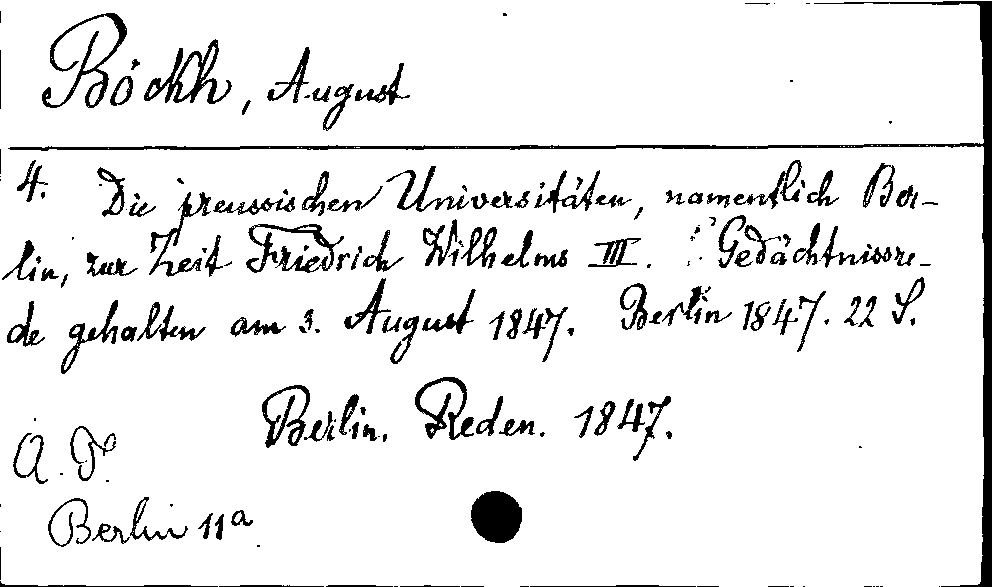 Böckh, August
4. Die preussischen Universitäten, namentlich Ber-
lin, zur Zeit Friedrich Wilhelms III. Gedächtnissre-
de gehalten am 3. August 1847. Berlin 1847. 22 S.
Berlin. Reden. 1847.
A. P.
Berlin 11a